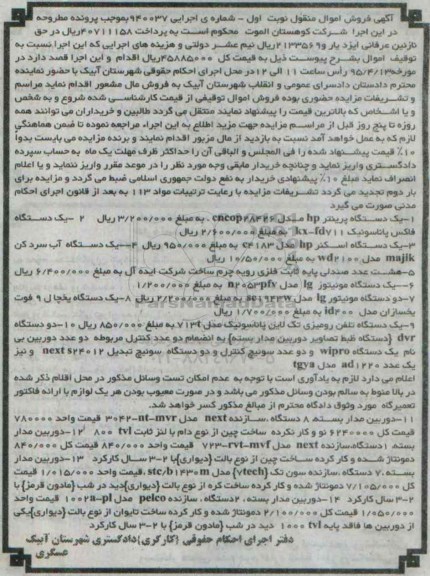 آگهی فروش اموال منقول نوبت اول - شماره ی اجرایی ۹۴۰۰۳۷ بموجب پرونده مطروحه
در این اجرا شرکت کوهستان الموت محکوم است به پرداخت ۴۰۷۱۱۱۵۸ ریال در حق
نازنین عرفانی ایزد یار و ۲۱۳۳۵۶۹ ریال نیم عشر دولتی و هزینه های اجرایی که این اجرا نسبت به
توقیف اموال بشرح پیوست ذیل به قیمت کل ۴۵۸۸۵۰۰۰ ریال اقدام و این اجرا قصد دارد در
مورخه ۹۵/۴/۱۳ راس ساعت ۱۱ الی ۱۲ در محل اجرای احکام حقوقی شهرستان آبیک با حضور نماینده
محترم دادستان دادسرای عمومی و انقلاب شهرستان آبیک به فروش مال مشعور اقدام نماید مراسم
و تشریفات مزایده حضوری بوده فروش اموال توقیفی از قیمت کارشناسی شده شروع و به شخص
و یا اشخاص که بالاترین قیمت را پیشنهاد نماینده منتقل می گردد طالبین و خریداران می توانند همه
روزه تا پنج روز قبل از مراسم مزایده جهت مزید اطلاع به این اجرا، مراجعه نموده تا ضمن هماهنگی
لازم که به عمل خواهد آمد نسبت به بازدید از مال مزبور اقدام نمایند و برنده مزایده می بایست بدوا
۱۰٪ قیمت پیشنهاد شده را فی المجلس و الباقی آن را حداکثر ظرف مهلت یک ماه به حساب سپرده
دادگستری واریز نماید و چنانچه خریدار مابقی وجه مورد نظر را در موعد مقرر واریز ننماید و یا اعلام
انصراف نماید مبلغ ۱۰٪ پیشنهادی خریدار به نفع دولت جمهوری اسلامی ضبط می گردد و مزایده برای
بار دوم تجدید می گردد تشریفات مزایده با رعایت ترتیبات مواد ۱۱۳ به بعد از قانون اجرای احکام
مدنی صورت می گیرد
۱-یک دستگاه پرینتر hp مدل cncop۲۸۴۲۶ به مبلغ ۳/۲۰۰/۰۰۰ ریال ۲ -یک دستگاه
فاکس پاناسونیک kx-fd۷۱۱ به مبلغ ۲/۶۰۰/۰۰۰ ریال
۳-یک دستگاه اسکنر hp مدل c۴۱۸۳ به مبلغ ۹۵۰/۰۰۰ ریال ۴-یک دستگاه آب سرد کن
majik مدل wd۲۱۰۰ به مبلغ ۱۰/۵۰۰/۰۰۰ ریال
۵-هشت عدد صندلی پایه ثابت فلزی رویه چرم ساخت شرکت ایده آل به مبلغ ۶/۴۰۰/۰۰۰ ریال
۶-یک دستگاه مونیتور lg مدل n۲۰۵۳pfv به مبلغ ۱/۲۰۰/۰۰۰
۷-دو دستگاه مونیتور lg مدل به مبلغ ۲/۲۰۰/۰۰۰ ریال ۸-یک دستگاه یخچال ۹ فوت
یخساران مدل id۴۰۰ به مبلغ ۱/۷۰۰/۰۰۰ ریال
۹-یک دستگاه تلفن رومیزی تک لاین پاناسونیک مدل ۷۱۳۴ به مبلغ ۸۵۰/۰۰۰ ریال ۱۰-دو دستگاه
dvr {دستگاه ضبط تصاویر دوربین مدار بسته} به انضمام دو عدد کنترل مربوطه دو عدد دوربین بی
نام یک دستگاه wipro و دو عدد سوئیچ کنترل و دو دستگاه سوئیچ تبدیل next ۶۲۴۰۱۲ و نیز
یک عدد ad ۱۲۲۰ مدل tgya
اعلام می دارد لازم به یادآوری است با توجه به عدم امکان تست وسائل مذکور در محل اقلام ذکر شده
در بالا منوط به سالم بودن وسائل مذکور می باشد و در صورت معیوب بودن هر یک لوازم با ارائه فاکتور
تعمیرگاه مورد وثوق دادگاه محترم از مبالغ مذکور کسر خواهد شد.
۱۱-دوربین مدار بسته، ۸ دستگاه ،سازنده next مدل ۳۰۴۲-nt-mvr قیمت واحد ۷۸۰۰۰۰
قیمت کل ۶۲۴۰۰۰۰ نو و کار نکرده ساخت چین از نوع دام با لنز ثابت ۸۰۰ tvl ۱۲-دوربین مدار
بسته، ۱ دستگاه،سازنده next مدل ۷۲۳-rvt-mvf قیمت واحد ۸۴۰/۰۰۰ قیمت کل ۸۴۰/۰۰۰
دمونتاژ شده و کار کرده ساخت چین از نوع بالت {دیواری}با ۲-۳ سال کارکرد ۱۳-دوربین مدار
بسته،۷ دستگاه ،سازنده سون تک {vtech} مدل stc/b۱۱۴۳۰m ،قیمت واحد ۱/۰۱۵/۰۰۰ قیمت
کل ۷/۱۰۵/۰۰۰ دمونتاژ شده و کار کرده ساخت کره از نوع بالت {دیواری}دید در شب {مادون قرمز} با
۲-۳ سال کارکرد ۱۴-دوربین مدار بسته، ۲ دستگاه، سازنده pelco مدل ۱۰۰۲ra-pl قیمت واحد
۱/۰۵۰/۰۰۰ قیمت کل ۲/۱۰۰/۰۰۰ دمونتاژ شده و کار کرده ساخت تایوان از نوع بالت {دیواری}یکی
از دوربین ها فاقد پایه ۱۰۰۰ tvl دید در شب {مادون قرمز} با ۲-۳ سال کارکرد
دفتر اجرای احکام حقوقی (کارگری)دادگستری شهرستان آبیک
عسگری